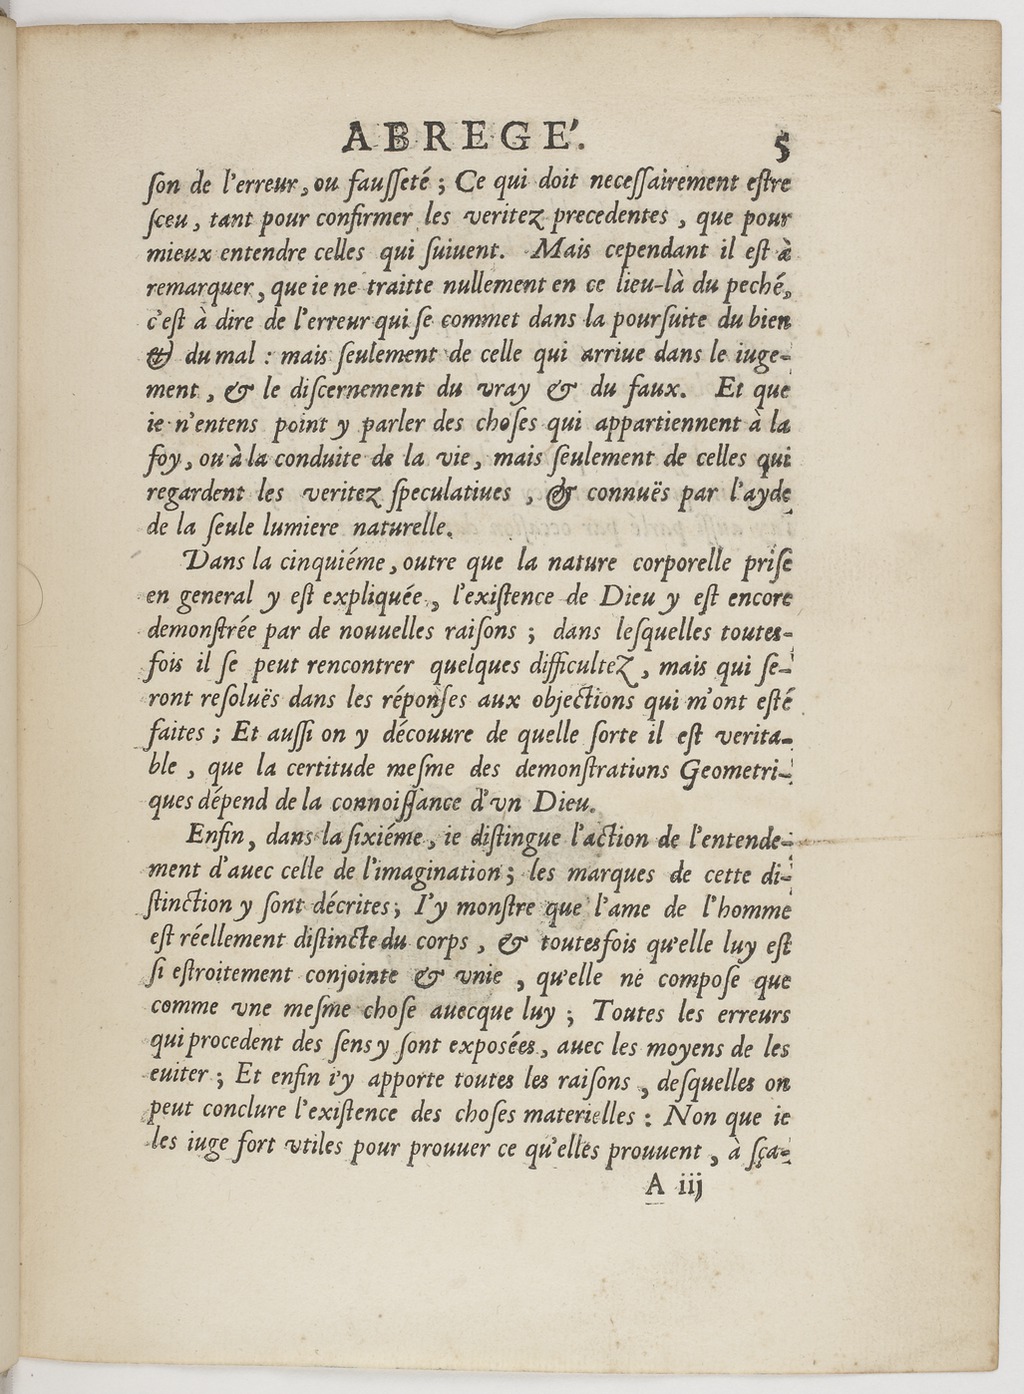 ABREGE'. 5
ſon de l'erreur, ou fauſſeté ; Ce qui doit neceſſairement eſtre
ſceu, tant pour confirmer les veritez precedentes, que pour
mieux entendre celles qui ſuiuent. Mais cependant il eſt à
remarquer, que ie ne traitte nullement en ce lieu-là du peché,
c'eſt à dire de l'erreur qui ſe commet dans la pourſuite du bien
& du mal : mais ſeulement de celle qui arriue dans le iuge-
ment, & le diſcernement du vray & du faux. Et que
ie n'entens point y parler des choſes qui appartiennent à la
foy, ou à la conduite de la vie, mais ſeulement de celles qui
regardent les veritez ſpeculatiues, & connuës par l'ayde
de la ſeule lumiere naturelle.
Dans la cinquiéme, outre que la nature corporelle priſe
en general y eſt expliquée, l'exiſtence de Dieu y eſt encore
demonſtrée par de nouuelles raiſons ; dans leſquelles toutes-
fois il ſe peut rencontrer quelques difficultez, mais qui ſe-
ront reſoluës dans les réponſes aux objections qui m'ont eſté
faites ; Et auſſi on y découure de quelle ſorte il eſt verita-
ble, que la certitude meſme des demonſtrations Geometri-
ques dépend de la connoiſſance d'vn Dieu.
Enfin, dans la ſixiéme, ie diſtingue l'action de l'entende-
ment d'auec celle de l'imagination ; les marques de cette di-
ſtinction y ſont décrites ; I'y monſtre que l'ame de l'homme
eſt réellement diſtincte du corps, & toutesfois qu'elle luy eſt
ſi eſtroitement conjointe & vnie, qu'elle ne compoſe que
comme vne meſme choſe auecque luy ; Toutes les erreurs
qui procedent des ſens y ſont expoſées, auec les moyens de les
euiter ; Et enfin i'y apporte toutes les raiſons, deſquelles on
peut conclure l'exiſtence des choſes materielles : Non que ie
les iuge fort vtiles pour prouuer ce qu'elles prouuent, à ſça-
A iij